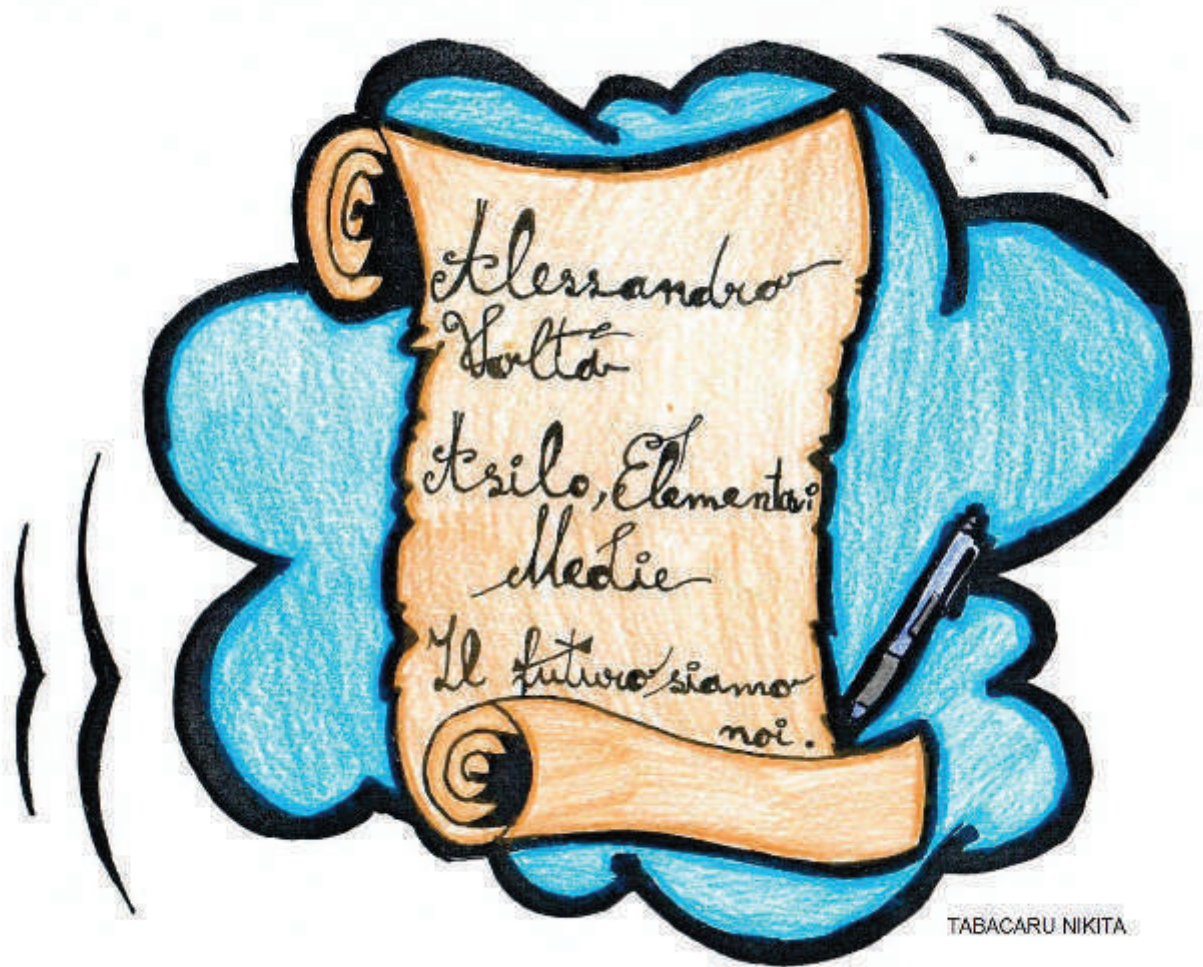 Alessandro
Volta
Asilo, Elementari
Medie
Il futuro siamo
noi.
TABACARU NIKITA